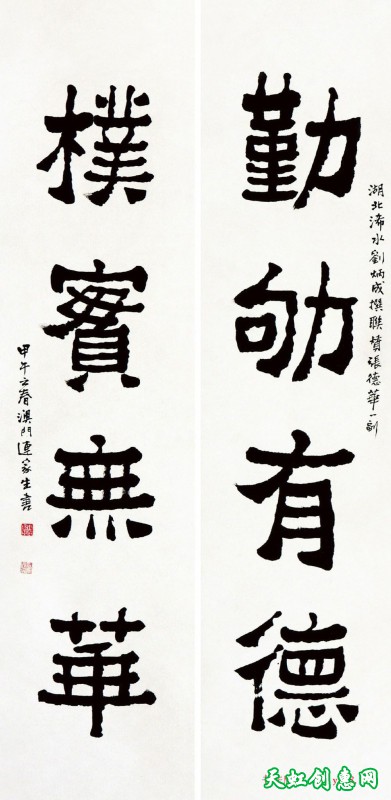 湖北浠水劉炳成撰聯贊張德華一副
勤劬有德
樸實無華
甲午之春澳門連家生書
天虹创意网